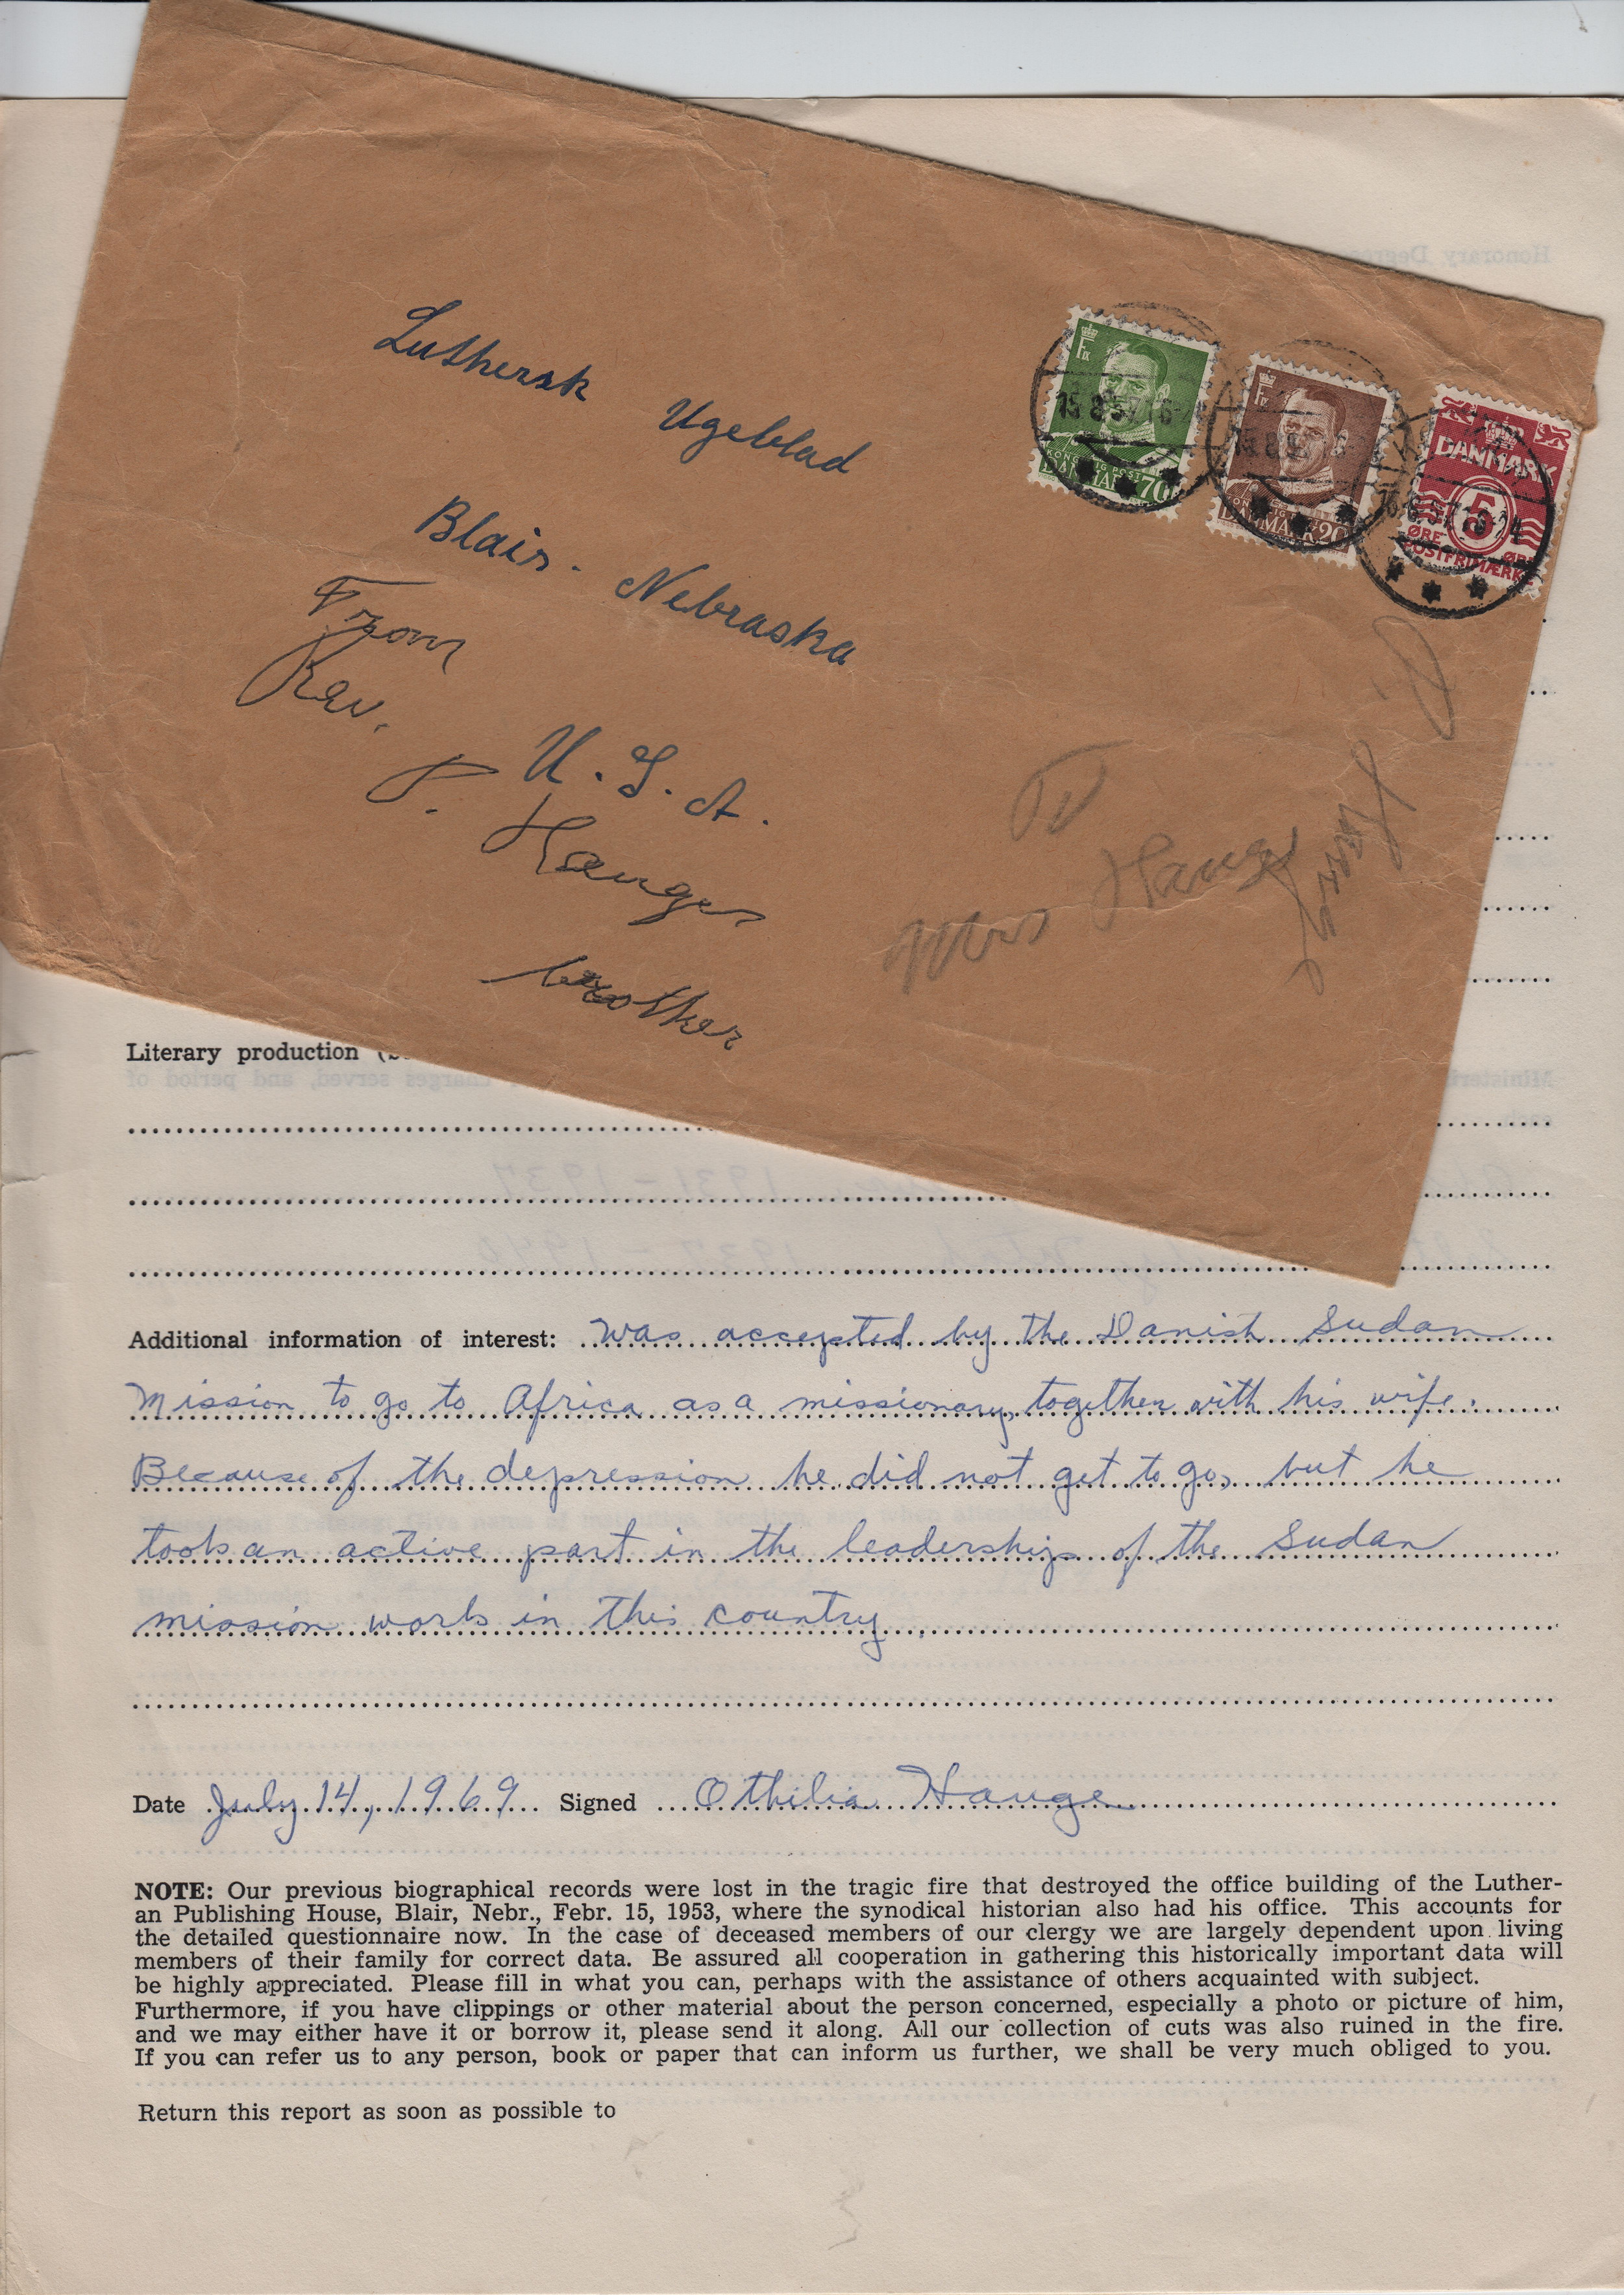 Luthersk Ugeblad
Blair - Nebraska
U.S.A.
From
Rev.
P. Hauges
brother
Mrs Hauge
DANMARK 70
DANMARK 20
DANMARK
5
ØRE ØRE
POSTFRIMÆRKE
Honorary
Literary production
charges served, and period of
1931-1937
1937-19
Additional information of interest: Was accepted by the Danish Sudan
Mission to go to Africa as a missionary, together with his wife.
Because of the depression he did not get to go, but he
took an active part in the leadership of the Sudan
mission work in this country.
Date July 14, 1969 Signed Othilia Hauge
NOTE: Our previous biographical records were lost in the tragic fire that destroyed the office building of the Luther-
an Publishing House, Blair, Nebr., Febr. 15, 1953, where the synodical historian also had his office. This accounts for
the detailed questionnaire now. In the case of deceased members of our clergy we are largely dependent upon living
members of their family for correct data. Be assured all cooperation in gathering this historically important data will
be highly appreciated. Please fill in what you can, perhaps with the assistance of others acquainted with subject.
Furthermore, if you have clippings or other material about the person concerned, especially a photo or picture of him,
and we may either have it or borrow it, please send it along. All our collection of cuts was also ruined in the fire.
If you can refer us to any person, book or paper that can inform us further, we shall be very much obliged to you.
Return this report as soon as possible to